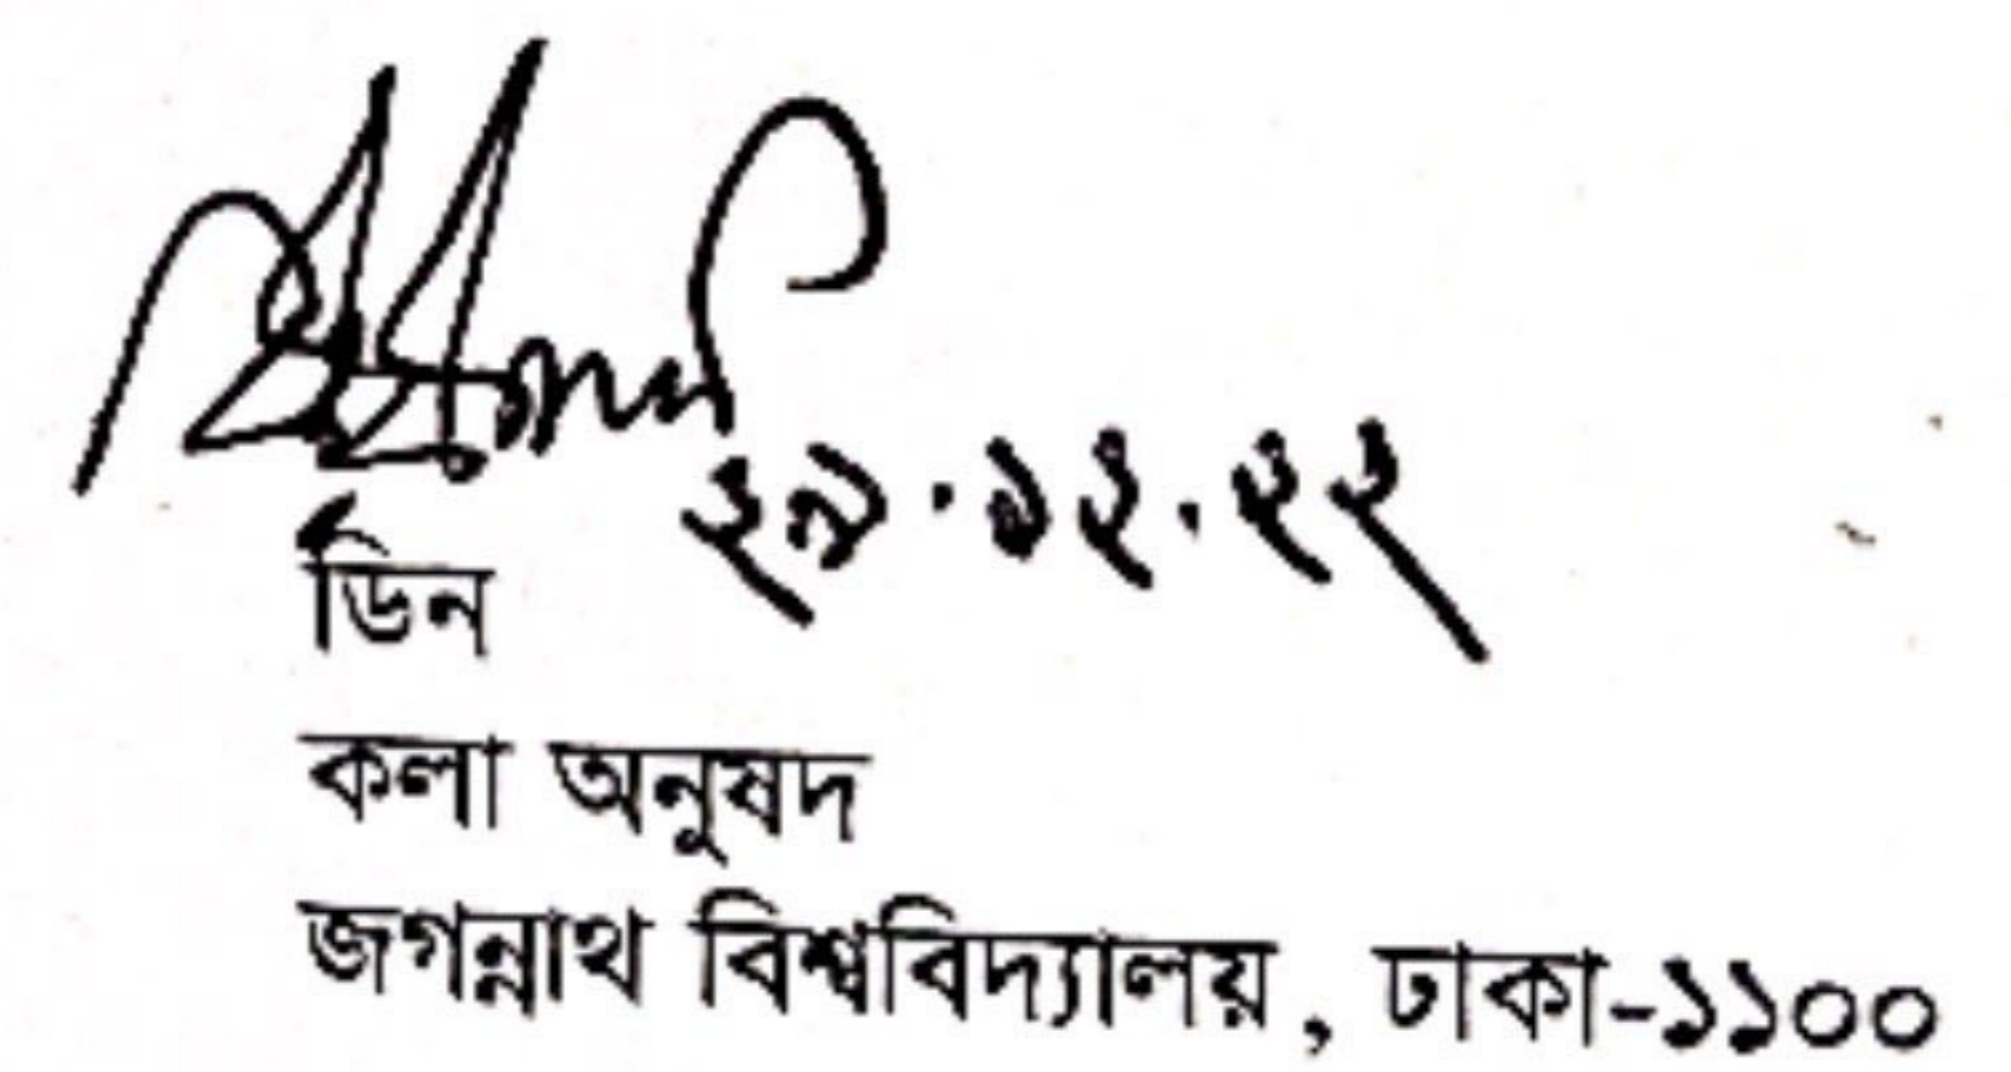 ২৯.১২.২২
ডিন
কলা অনুষদ
জগন্নাথ বিশ্ববিদ্যালয়, ঢাকা-১১০০